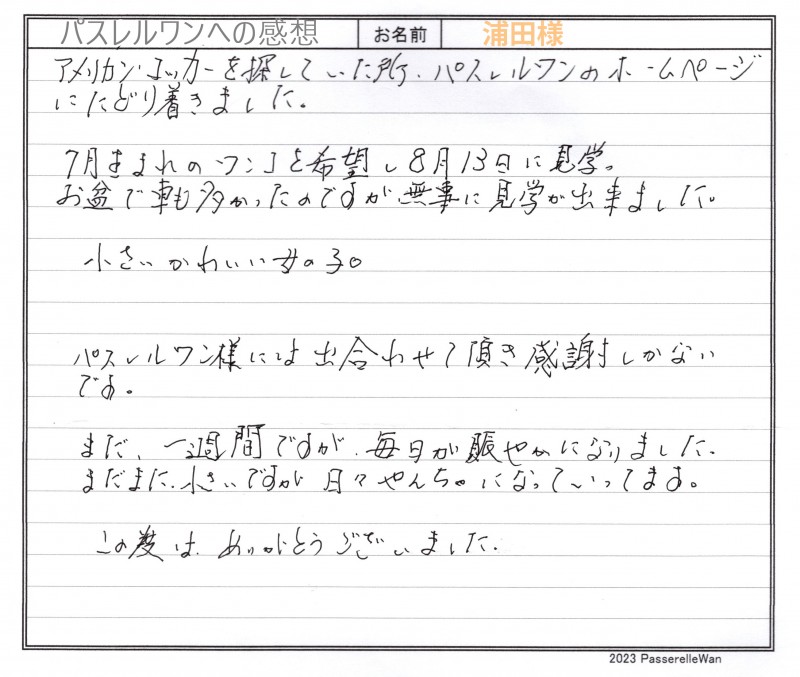 パスレルワンへの感想 お名前 浦田様
アメリカン・コッカーを探していた所、パスレルワンのホームページ
にたどり着きました。
7月生まれのワンコを希望し8月13日に見学。
お盆で車も多かったのですが無事に見学が出来ました。
小さいかわいい女の子。
パスレルワン様には出合わせて頂き感謝しかない
です。
まだ、一週間ですが、毎日が賑やかになりました。
まだまだ、小さいですが日々やんちゃになっていってます。
この度は、ありがとうございました。
2023 PasserelleWan